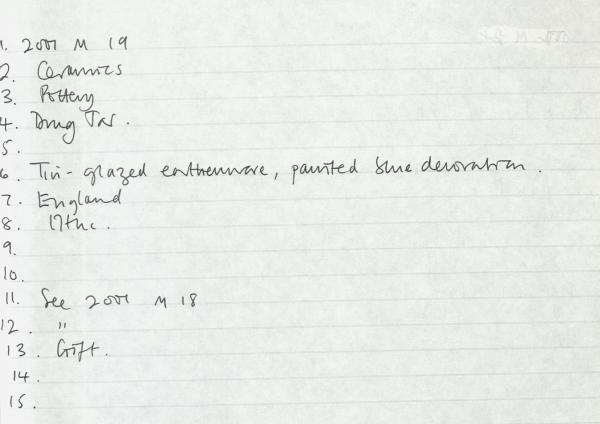 1. 2001 M 19
2. Ceramics
3. Pottery
4. Drug Jar.
5.
6. Tin-glazed earthenware, painted blue decoration.
7. England
8. 17thc.
9.
10.
11. See 2001 M 18
12. "
13. Gift.
14.
15.